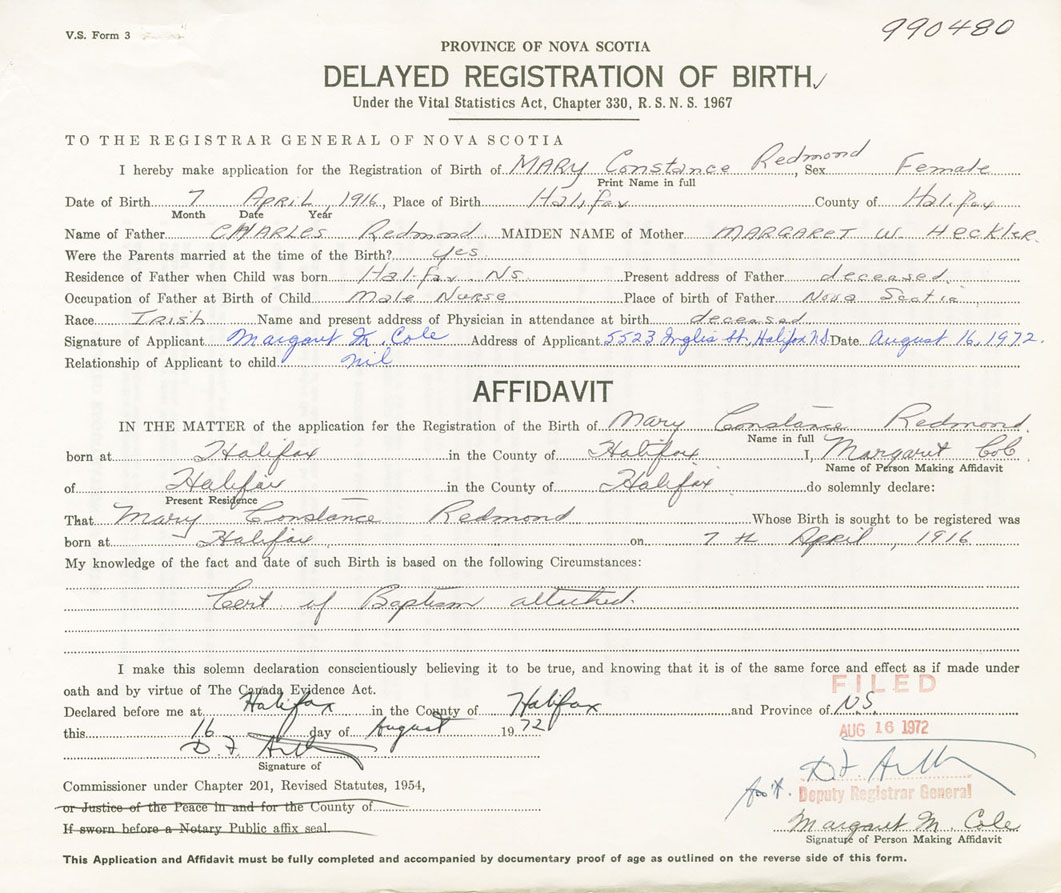 V.S. Form 3
990480
PROVINCE OF NOVA SCOTIA
DELAYED REGISTRATION OF BIRTH
Under the Vital Statistics Act, Chapter 330, R. S. N. S. 1967
TO THE REGISTRAR GENERAL OF NOVA SCOTIA
I hereby make application for the Registration of Birth of MARY Constance Redmond, Sex Female
Print Name in full
Date of Birth 7 April, 1916, Place of Birth Halifax County of Halifax
Month Date Year
Name of Father CHARLES Redmond MAIDEN NAME of Mother MARGARET W. Heckler.
Were the Parents married at the time of the Birth? yes
Residence of Father when Child was born Halifax NS Present address of Father deceased
Occupation of Father at Birth of Child Male Nurse Place of birth of Father Nova Scotia
Race Irish Name and present address of Physician in attendance at birth deceased
Signature of Applicant Margaret M. Cole Address of Applicant 5523 Inglis St., Halifax N.S. Date August 16, 1972.
Relationship of Applicant to child nil
AFFIDAVIT
IN THE MATTER of the application fer the Registration of the Birth of Mary Constance Redmond
Name in full
born at Halifax in the County of Halifax I, Margaret Cole
Name of Person Making Affidavit
of Halifax in the County of Halifax do solemnly declare:
Present Residence
That Mary Constance Redmond Whose Birth is sought to be registered was
born at Halifax on 7th April, 1916
My knowledge of the fact and date of such Birth is based on the following Circumstances:
Cert of Baptism attached.
I make this solemn declaration conscientiously believing it to be true, and knowing that it is of the same force and effect as if made under
oath and by virtue of The Canada Evidence Act.
FILED
Declared before me at Halifax in the County of Halifax and Province of N.S.
this 16 day of August 1972
AUG 16 1972
D. F.
Signature of
D. F.
Commissioner under Chapter 201, Revised Statutes, 1954,
Deputy Registrar General
or Justice of the Peace in and for the County of
If sworn before a Notary Public affix seal.
Margaret M. Cole
Signature of Person Making Affidavit
This Application and Affidavit must be fully completed and accompanied by documentary proof of age as outlined on the reverse side of this form.